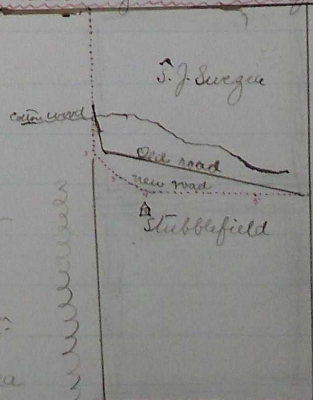 S. J. Swezea
Cottonwood
Old road
new road
Stubblefield